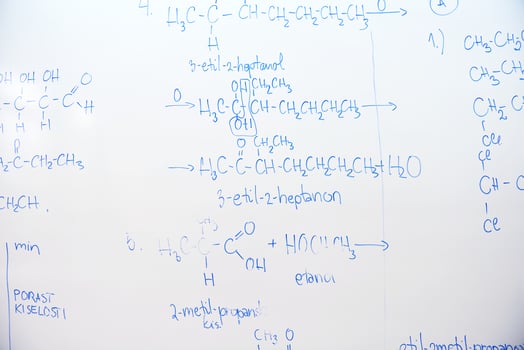 4. H₃C-C-CH-CH₂-CH₂-CH₂-CH₃ O→
H
3-etil-2-heptanol
OH CH₂CH₃
O→ H₃C-C-CH-CH₂CH₂CH₂CH₃ →
OH
O CH₂CH₃
→ H₃C-C-CH-CH₂CH₂CH₂CH₃ + H₂O
3-etil-2-heptanon
5. H₃C-C-C O + HO CH₃ →
H OH etanol
2-metil-propans
kis.
CH₃ O
OH OH OH O
-C-C-C H
H H H
-C-CH₂-CH₃
CH₂CH.
min
PORAST
KISELOSTI
A
1.) CH₃-CH₂
CH₃-CH₂
CH₂-C
Cl
Cl
CH-C
Cl
etil-2metil-propano